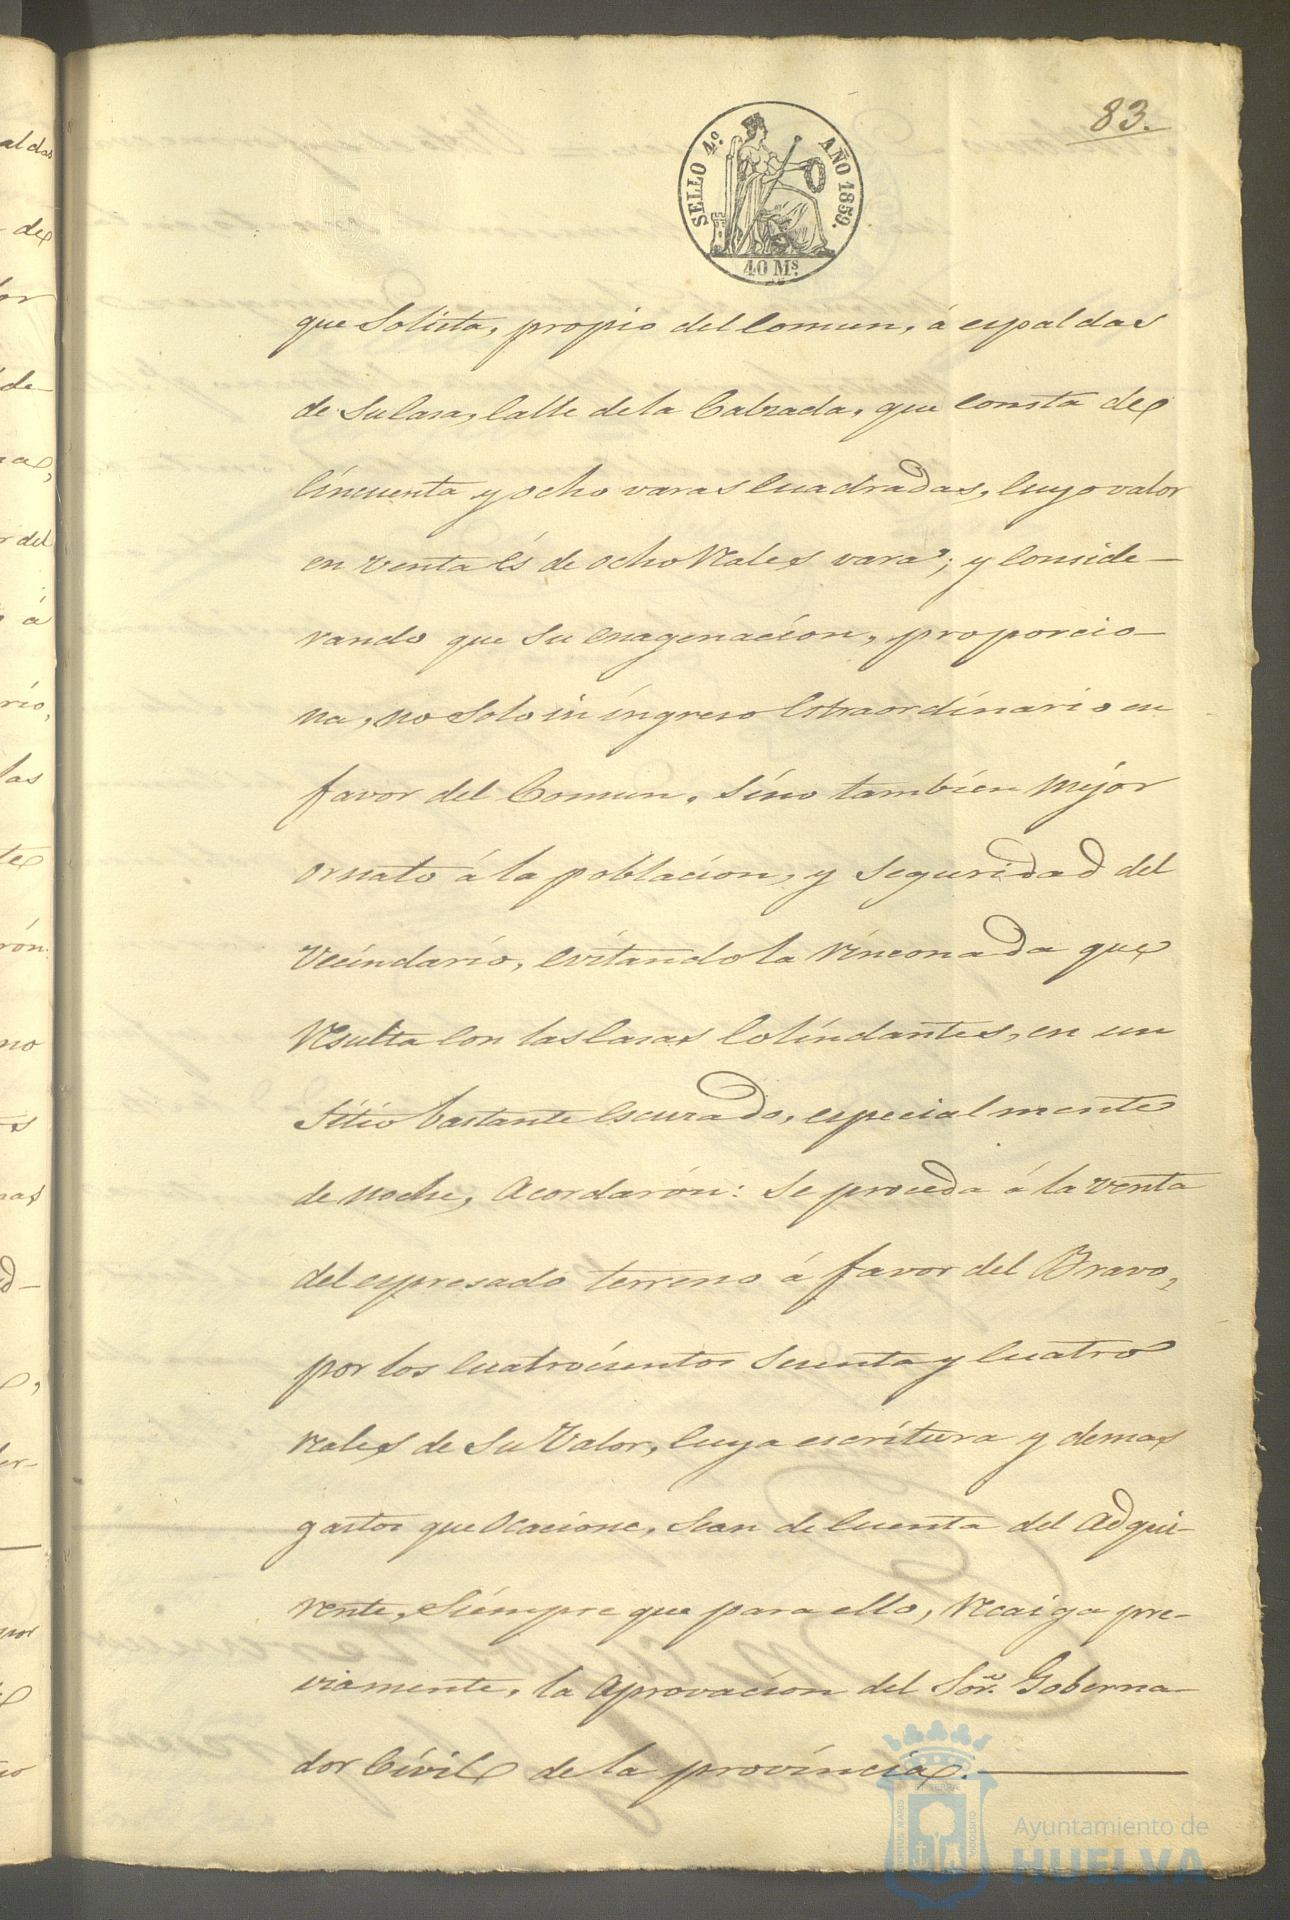 83.
SELLO 4.º AÑO 1859.
40 Ms.
que Solicita, propio del Comun, á espaldas
de Su Casa, Calle de la Calzada, que Consta de
Cincuenta y ocho varas Cuadradas, Cuyo valor
en venta És de ocho Rales vara; y Conside-
rando que Su Enagenacion, proporcio-
na, no Solo un ingreso Estraordinario en
favor del Comun, Sino tambien Mejor
ornato á la poblacion, y Seguridad del
Vecindario, Evitando la Rinconada que
Resulta Con las Casas Colindantes, en un
Sitio bastante Escusado, especialmente
de noche, Acordarón: Se proceda á la venta
del espresado terreno á favor del Bravo,
por los Cuatrocientos Sesenta y Cuatro
Rales de Su Valor, Cuya escritura y demas
gastos que Ocacione, Sean de Cuenta del Adqui-
rente, Siempre que para ello, Recaiga pre-
viamente, la Aprovacion del Sor. Goberna-
dor Civil de la provincia.
Ayuntamiento de
HUELVA
al das
de
del
á
las
no